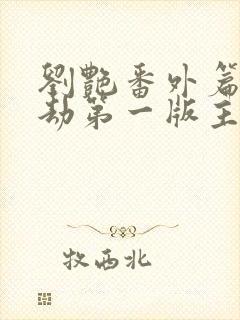 劉艷番外篇
劫第一版主
牧西北